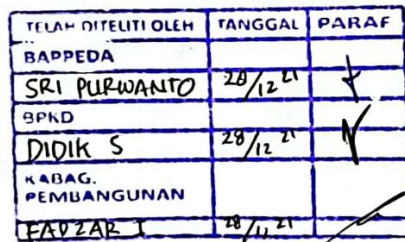 TELAH DITELITI OLEH TANGGAL PARAF
BAPPEDA
SRI PURWANTO 28/12 21
BPKD
DIDIK S 28/12 21
KABAG.
PEMBANGUNAN
FAUZAR I 28/12 21